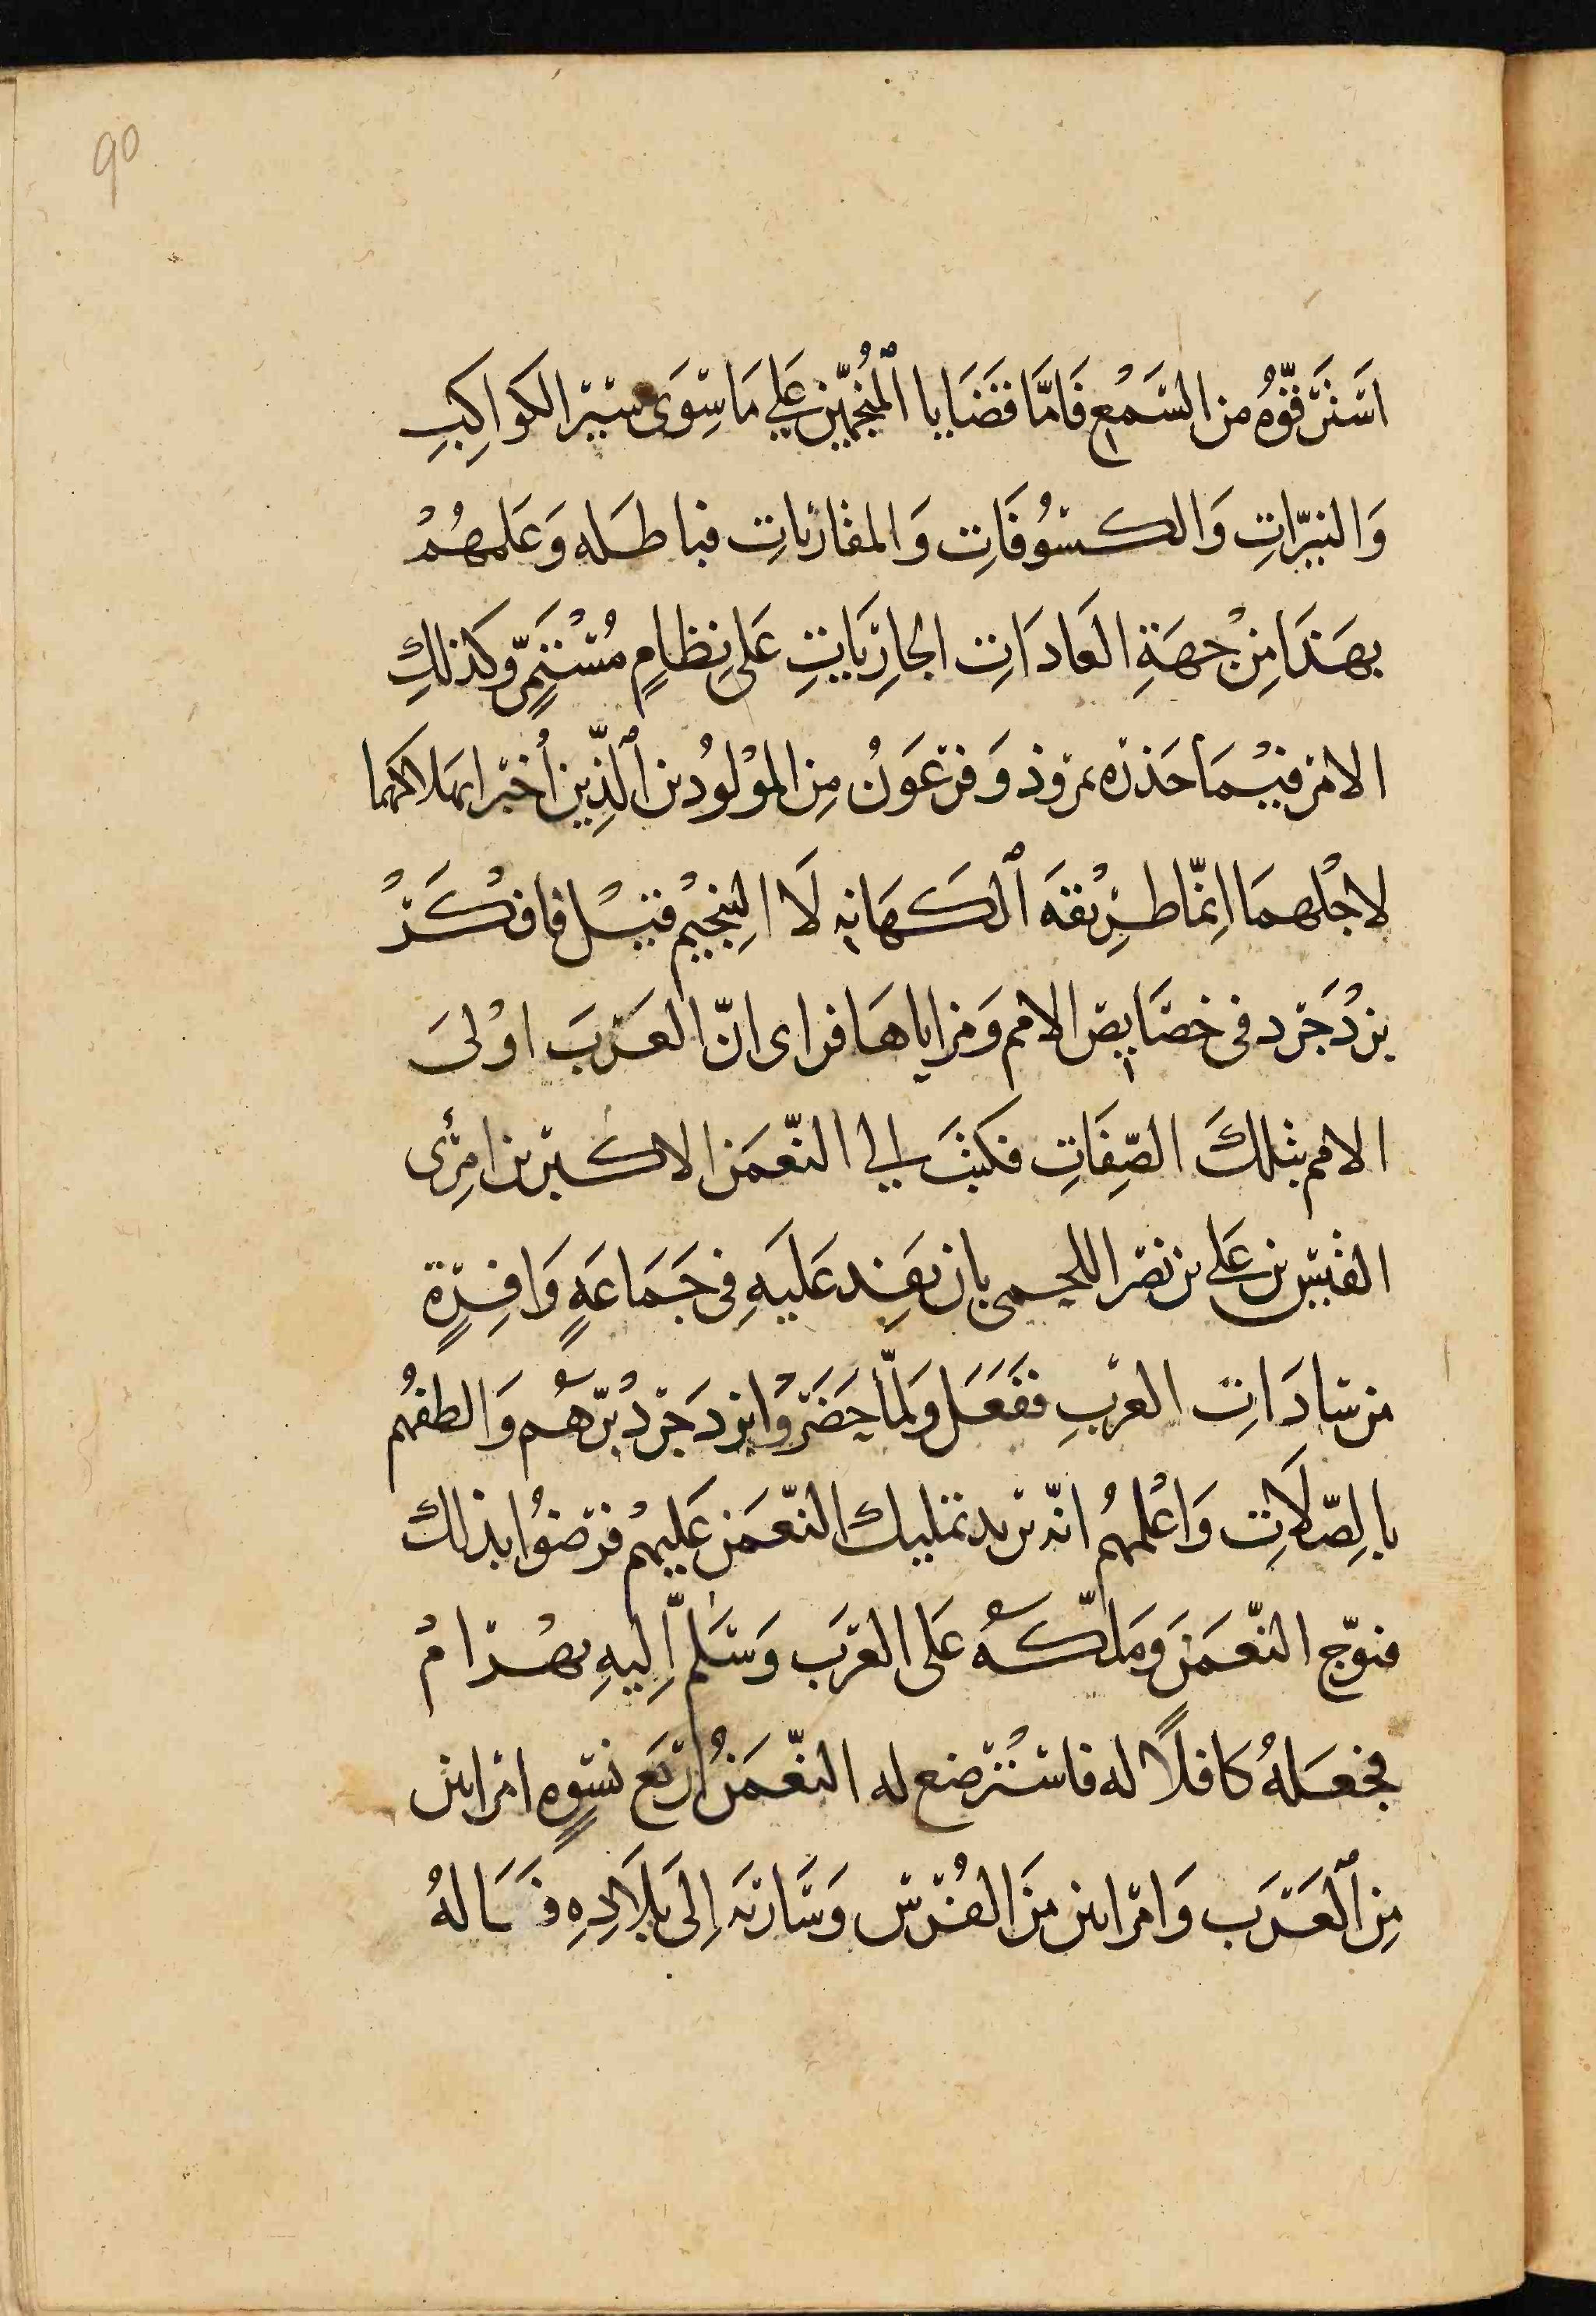 90
اَسْتَرَقّوُهُ من السَّمْعِ فَامَّا قضَايا ٱلْمُنجّمِيْنَ عَلَي مَا سِوَى سَيْر الكَواكِبِ
وَالنيّرَاتِ وَالكسُوُفَاتِ وَالمقارَنَاتِ فباطله وَعَلمهُمْ
بهَذَا مِنْ جهَةِ العَادَاتِ الجَارِيَاتِ عَلَى نِظَامٍ مُسْتَمِرّ وَكذلكَ
الامْر فيْمَا حَذرَه نمروذ وَفرْعَوْنُ مِن المَوْلوُدين ٱلذِّين أُخبرا بهَلاكهما
لاجْلهمَا اِنّما طريْقَة ٱلكَهَانه لَا التنجيْم قيْل فافكَرَ
يزدْجَرد فى خصَايِص الامم وَمزاياهَا فراى انّ العَرَبَ اوْلىَ
الامم بتلكَ الصّفَاتِ فكتبَ الي النّعمَن الاكبر بن امرئ
القيْس بن عَلى بن نصر اللخمى بان يَفِد عَليَهِ فى جَمَاعَةٍ وَافِرَةٍ
من سَادَاتِ العَربِ ففَعَل وَلمّا حَضَروْا يزدَجَردْ بَرّهُم وَالطفهُم
بالصّلَاتِ وَاعْلمهُم انّه يريد تمليك النّعمَن عَليهْم فرضوُا بذلكَ
فتوّج النّعمَن وَملّكهُ عَلى العَرَب وَسَلّم اِليهِ بهْرام
فجعَلهُ كافلًا له فاسْترضع له النّعمَن اربَع نسْوةٍ امراتين
مِن ٱلعَرَب وَامراتين مِنَ الفُرْس وَسَار به اِلَى بلَادِهِ فسَالهُ